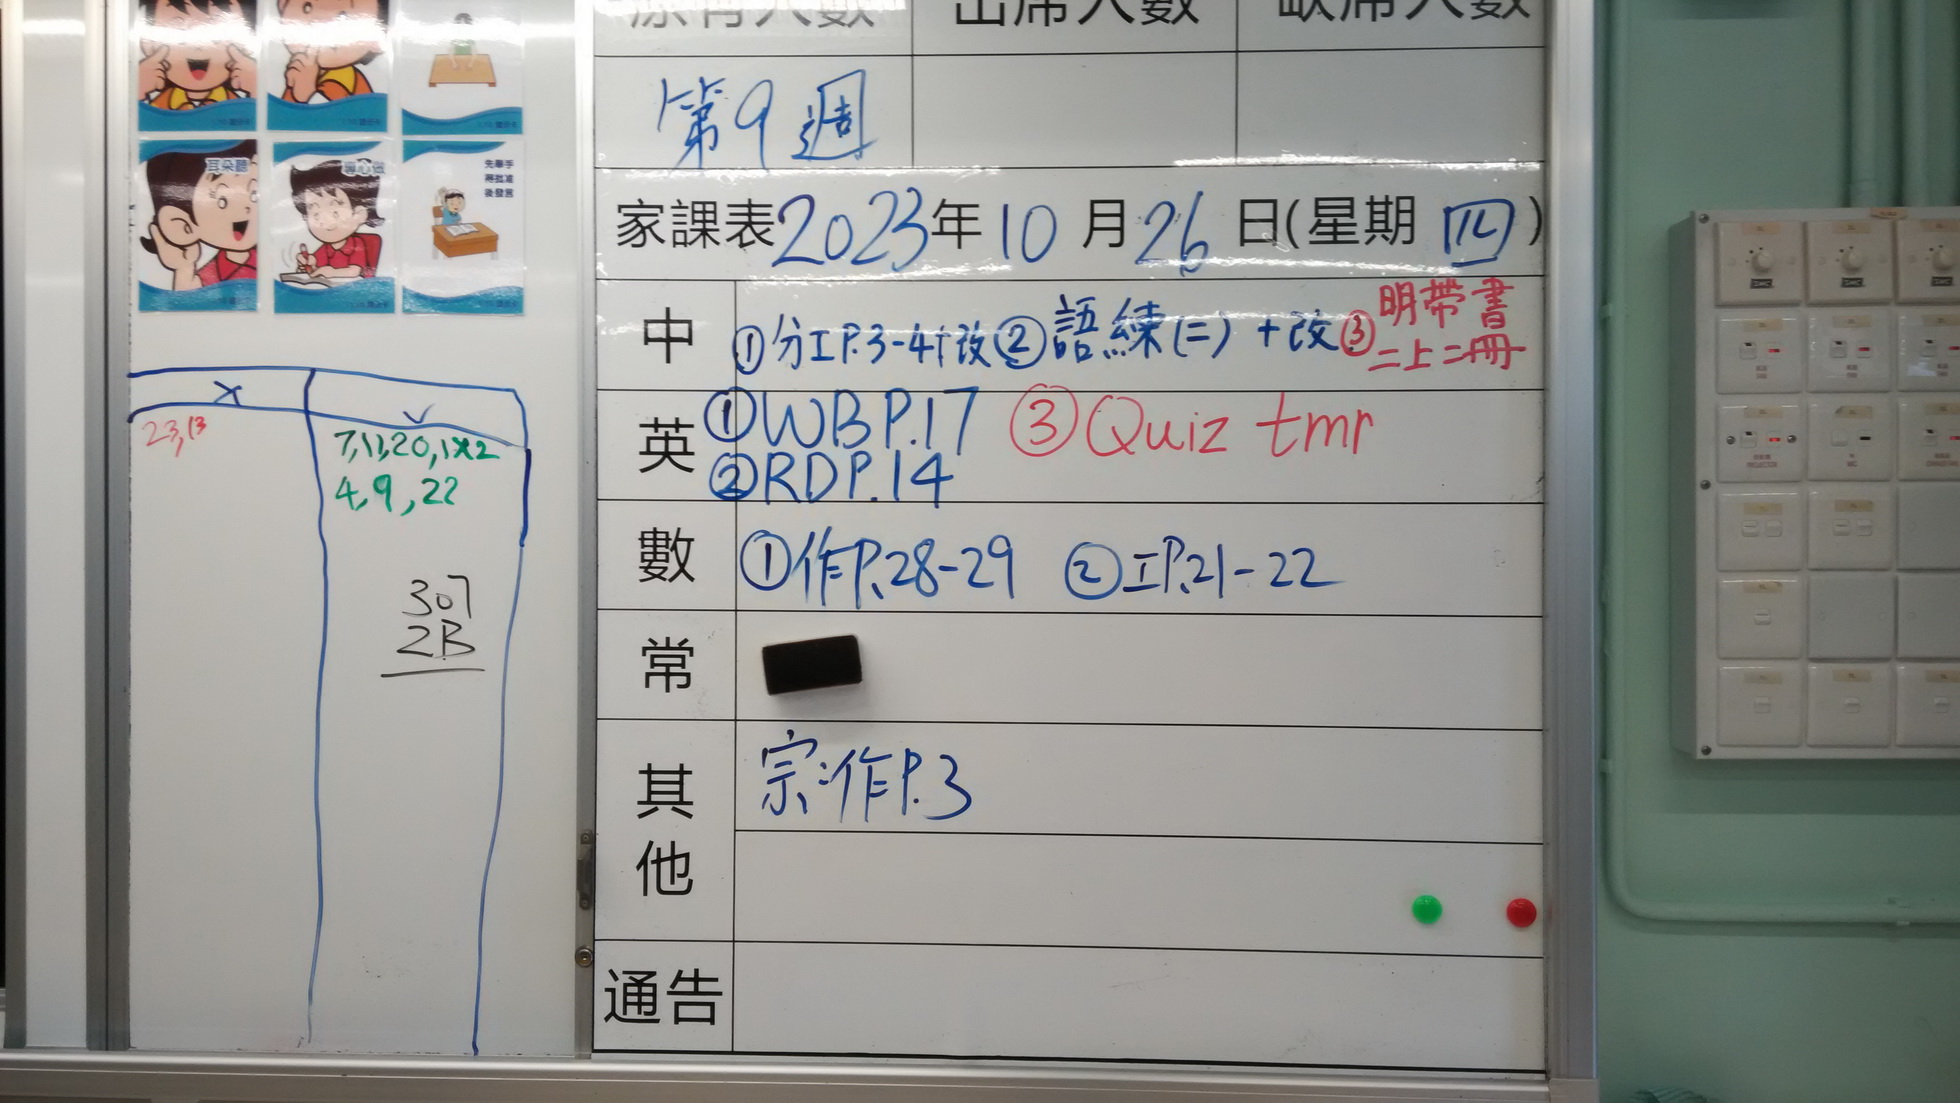 原有人數 出席人數 缺席人數
第9週
家課表2023年10月26日(星期四)
中 ①分工P.3-4+改 ②語練(二)+改 ③明帶書
二上二冊
英 ①WB P.17 ③Quiz tmr
②RD P.14
數 ①作P.28-29 ②工P.21-22
常
其他 宗:作P.3
通告
耳朵聽
專心做
先舉手
得批准
後發言
X ✓
23,13 7,11,20,1x2
4,9,22
307
2B